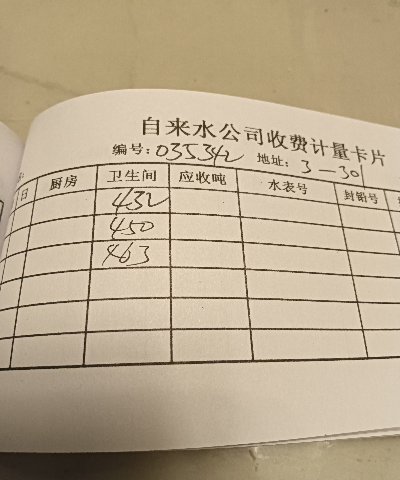 自来水公司收费计量卡片
编号：035342 地址：3—301
日 厨房 卫生间 应收吨 水表号 封铅号
432
450
463